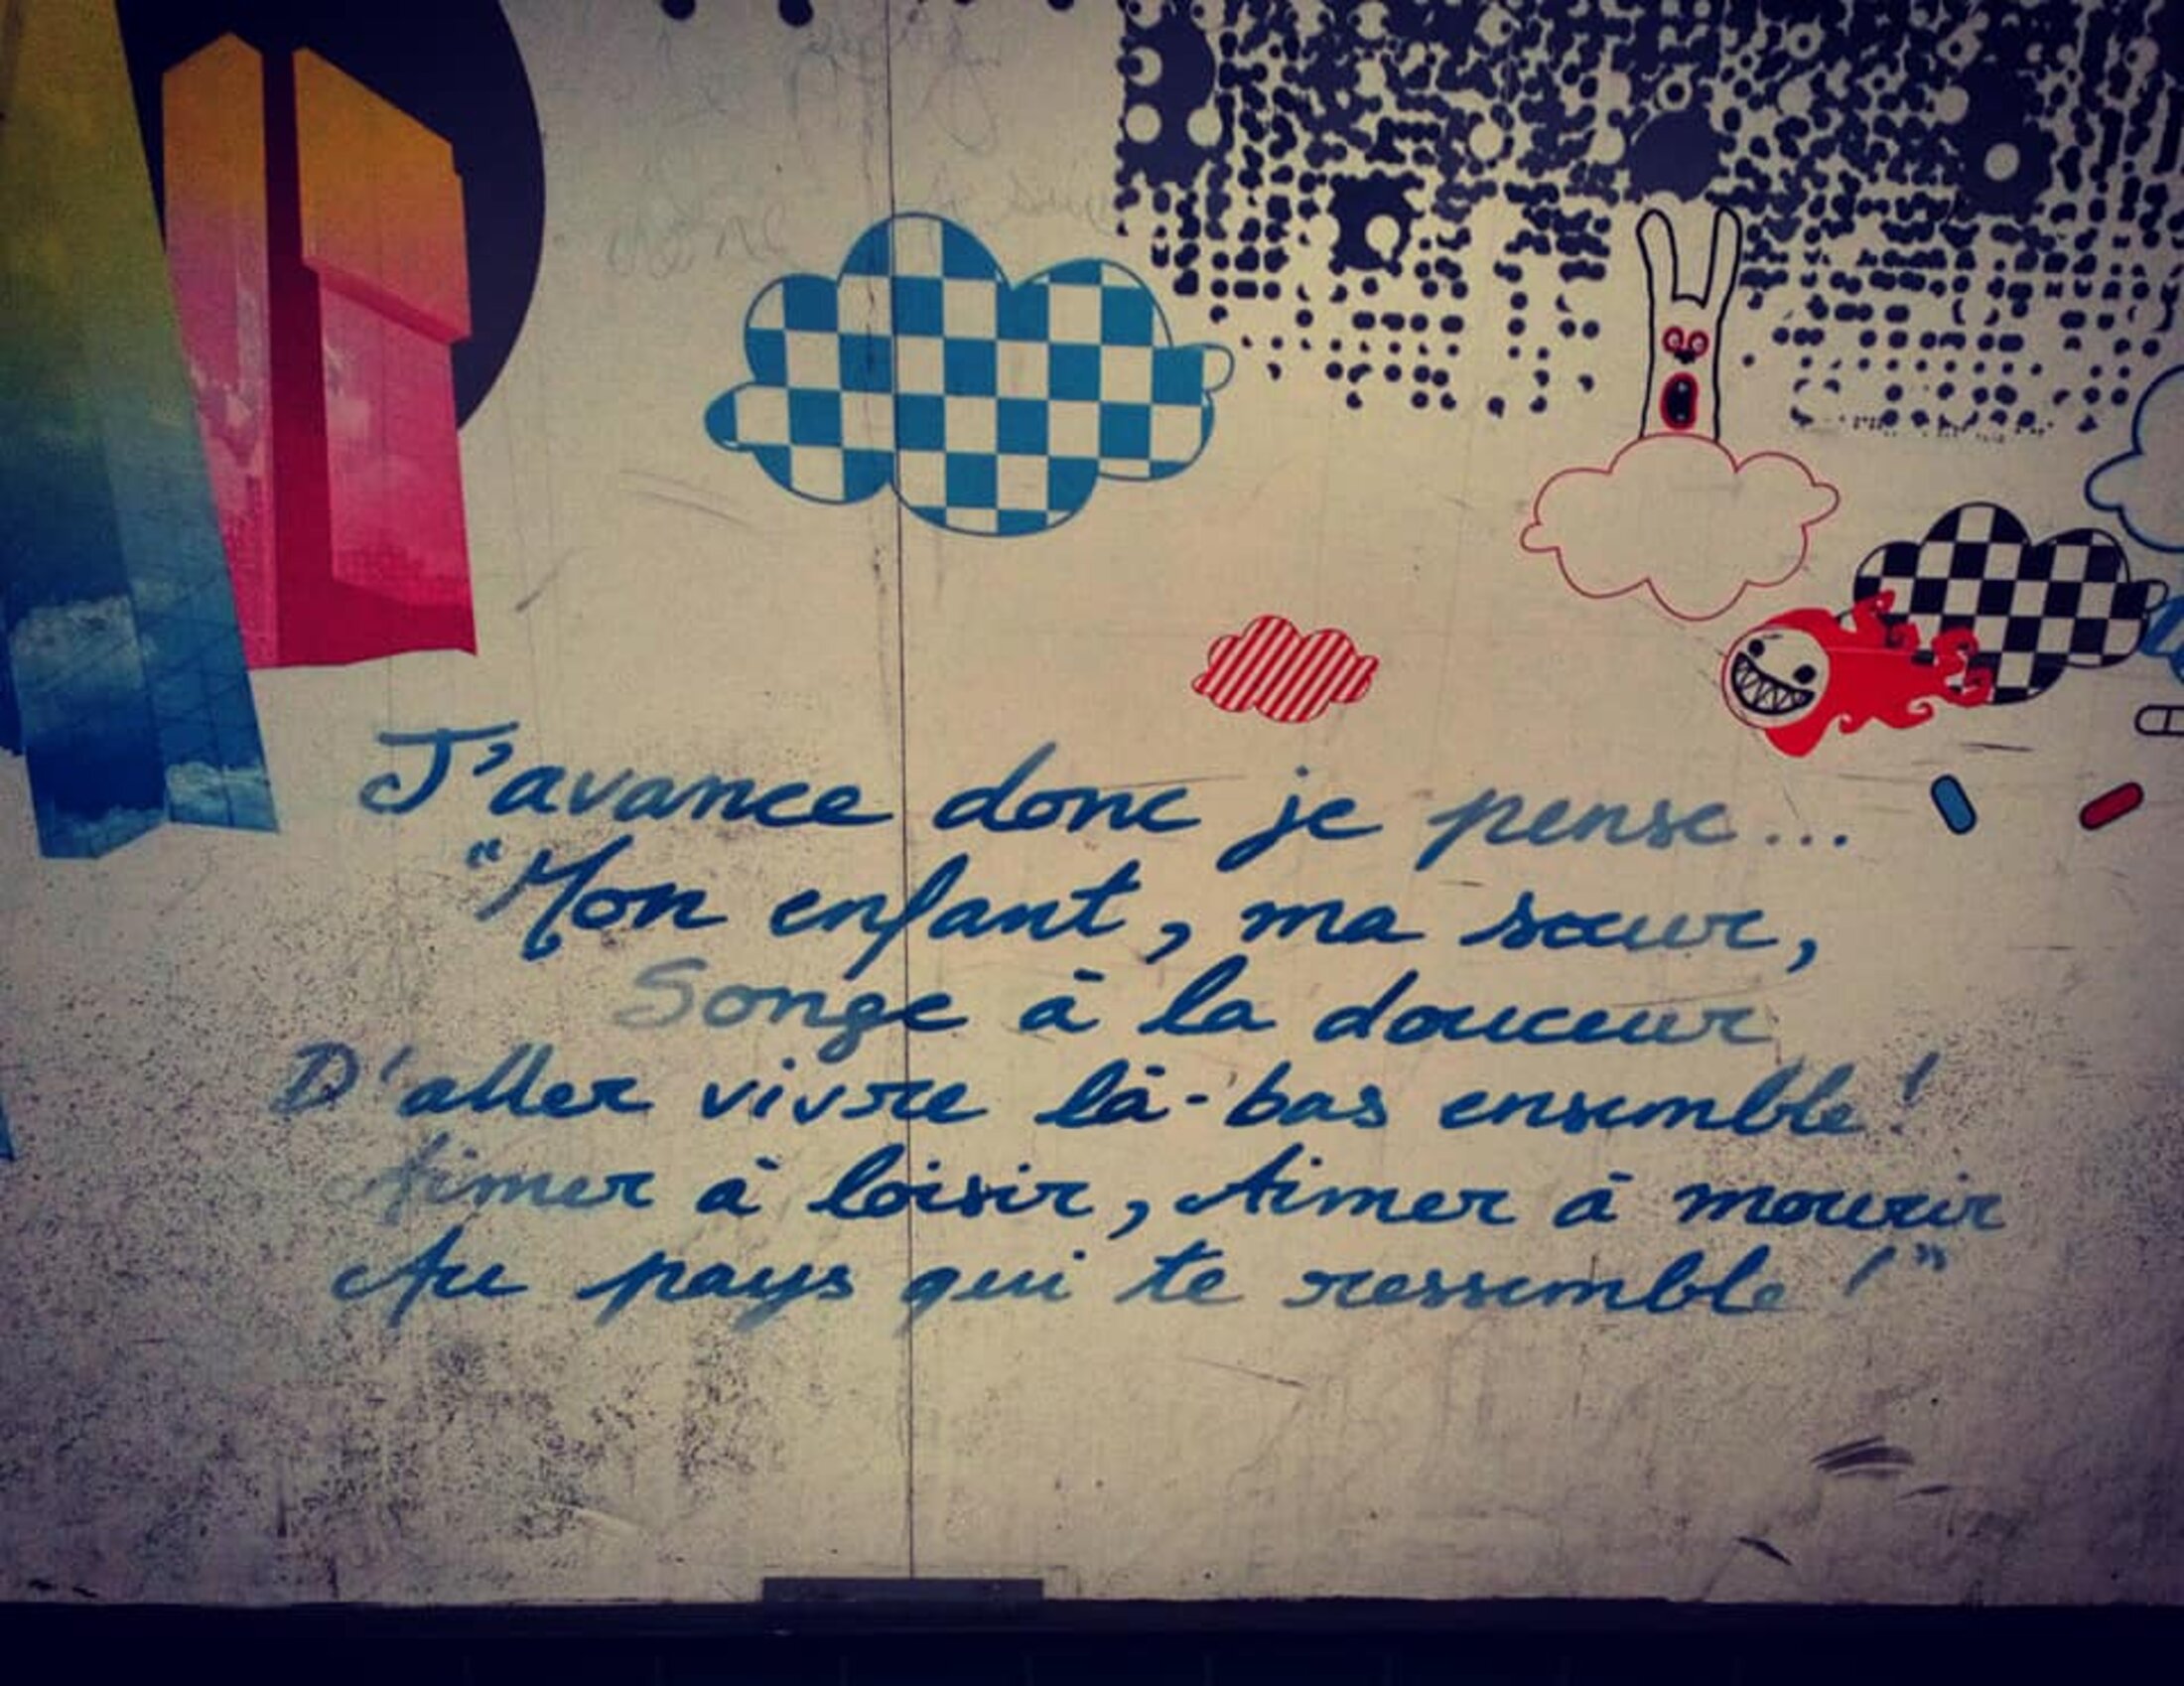 J'avance donc je pense...
"Mon enfant, ma sœur,
Songe à la douceur
D'aller vivre là-bas ensemble!
Aimer à loisir, Aimer à mourir
Au pays qui te ressemble!"